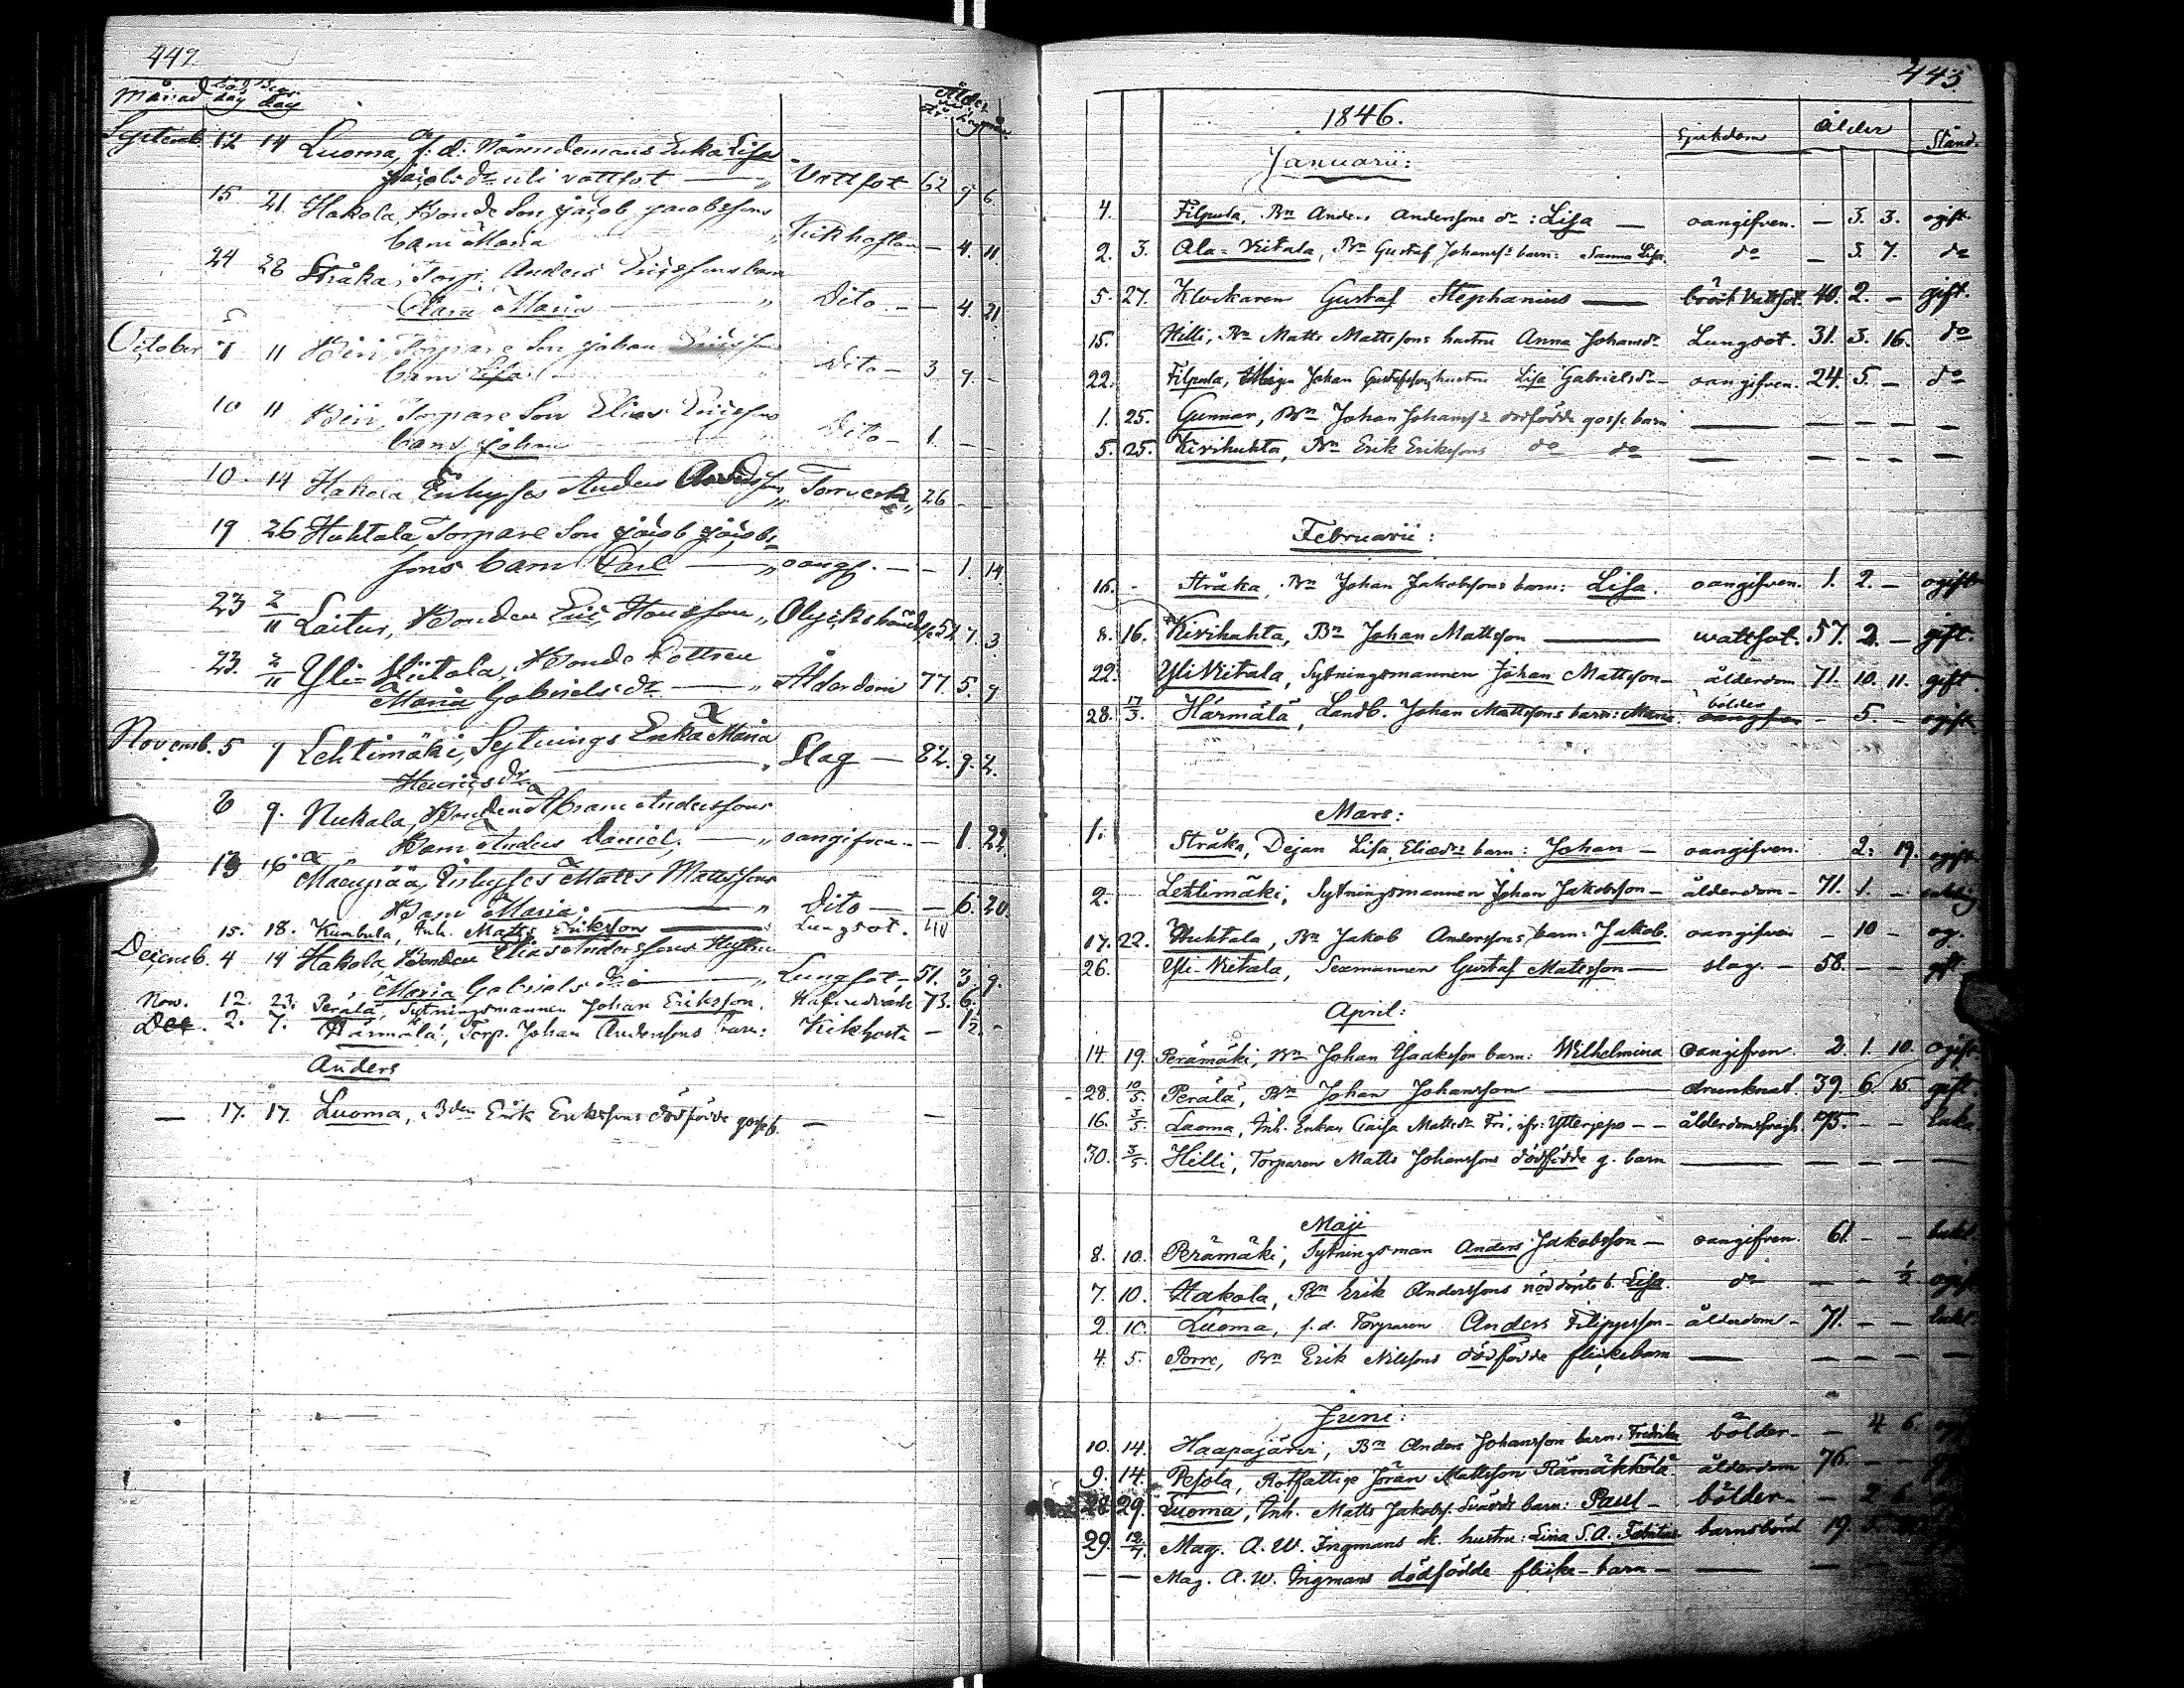 442
Månad Död dag Begr. dag Ålder
Septemb. 12 14 Luoma, f: d: Nämndemans Enka Lisa
Jacobs dr uti vattsot — " Vattsot 62 9 6.
15 21. Hakola, Bonde Son Jacob Jacobssons
barn Maria " Kikhostan — 4. 11.
24 28 Stråka, Torp: Anders Ericssons barn
Clara Maria " Dito — — 4. 21.
October 7 11 Torpare Son Johan
barn Lisa Dito — 3 9. —
10 11 Torpare Son Elias Ericssons
barn Johan " Dito — 1. — —
10. 14 Hakola Inhyses Anders " Torrverk " 26 - -
19 26 Huhtala, Torpare Son Jacob Jacobs-
sons barn Carl — " oangf. — — 1. 14.
23 2/11 Laitus, Bonden Eric Hansson " Olyckshändelse 52. 7. 3
23. 2/11 Yli-Kiitola, Bonde
Maria Gabriels dr — " Ålderdom 77. 5. 9
Novemb. 5 9 Lehtimäki, Sytnings Enka Maria
Henrics dr " Slag — 82. 9. 2.
6 9. Nukala, Bonden Abram Anderssons
Barn Anders Daniel. — " oangifven — — 1. 22.
13 16 Mäenpää, Inhyses Matts Mattssons
Barn Maria. — " Dito — — 6. 20.
15. 18. Kumbula, Inh. Matts Eriksson Lungsot. 40
Decemb. 4 14 Hakola Bonden Elias Anderssons Hustru
Maria Gabriels dr — " Lungsot, 51. 3. 9.
Nov. 12. 23. Perälä, Sytningsmannen Johan Eriksson. 73. 6.
Dec. 2. 7. Härmälä, Torp. Johan Anderssons barn: Kikhosta — 1/2. -
Anders
— 17. 17. Luoma, Bden Erik Erikssons dödfödde gosseb. — —
443.
1846. Sjukdom Ålder Stånd.
Januarii:
4. Filpula, Bn Anders Anderssons dr: Lisa — oangifven. — 3. 3. ogift
2. 3. Ala-Viitala, Bn Gustaf Johanss: barn: Sanna Lisa. do — 3. 7. do
5. 27. Klockaren Gustaf Stephanius — bröst Vattsot. 40. 2. — gift.
15. Hilli, Bn Matts Mattssons hustru Anna Johansdr Lungsot. 31. 3. 16. do
22. Filpula, Johan Gustafssons hustru Lisa Gabrielsdr — oangifven. 24. 5. — do
1. 25. Gunnar, Bn Johan Johanss: dödfödde gosse barn — — — — —
5. 25. Kivihuhta, Bn Erik Erikssons do do — — — — —
Februarii:
16. - Stråka, Bn Johan Jakobssons barn: Lisa. oangifven. 1. 2. — ogift
8. 16. Kivihuhta, Bn Johan Mattsson — wattsot. 57. 2. — gift.
22. Yli Viitala, Sytningsmannen Johan Mattsson — ålderdom 71. 10. 11. gift.
28. 17/3. Härmälä, Landb. Johan Mattssons barn: Maria bölder — 5. — ogift
Mars:
1. Stråka, Pejan Lisa Eliædr barn: Johan — oangifven. 2. 19. ogift
2. Lehtimäki, Sytningsmannen Johan Jakobsson — ålderdom — 71. 1. —
17. 22. Huhtala, Bn Jakob Anderssons barn: Jakob. oangifven — 10 — og.
26. Yli-Viitala, Sexmannen Gustaf Mattsson — slag. — 58. — — gft.
April:
14. 19. Perämäki, Bn Johan Isaaksson barn: Wilhelmina Oangifven. 2. 1. 10. ogift.
28. 10/5. Perälä, Bn Johan Johansson — drunknat. 39. 6. 15 gift.
16. 3/5 Luoma, Inh. Enkan Caisa Mattsdr Fri, ifr: Ytterjepo — — 75. — — Enka.
30. 3/5. Hilli, Torparen Matts Johanssons dödfödde g. barn — — — — —
Maji
8. 10. Perämäki, Sytningsman Anders Jakobsson — oangifven. 61 — —
7. 10. Hakola, Bn Erik Anderssons nöddöpte b. Lisa. do — — 1/2 ogift
2. 10. Luoma, f.d. Torparen Anders Filippusson — ålderdom — 71. — —
4. 5. Porre, Bn Erik Nilssons dödfödde flickebarn — — — — —
Juni:
10. 14. Haapajärvi, Bn Anders Johansson barn: Fredrika bölder — — 4 6.
9. 14. Pesola, Rotfattige Jöran Mattsson Rämäkkölä. ålderdom 76. — —
28. 29. Luoma, Inh. Matts Jakobss. Svärds barn: Paul — bölder — — 2 6
29. 12/7. Mag. A. W. Ingmans hustru: Lina S. A. barnsbörd 19. 5.
— — Mag. A. W. Ingmans dödfödde flicke-barn — — —